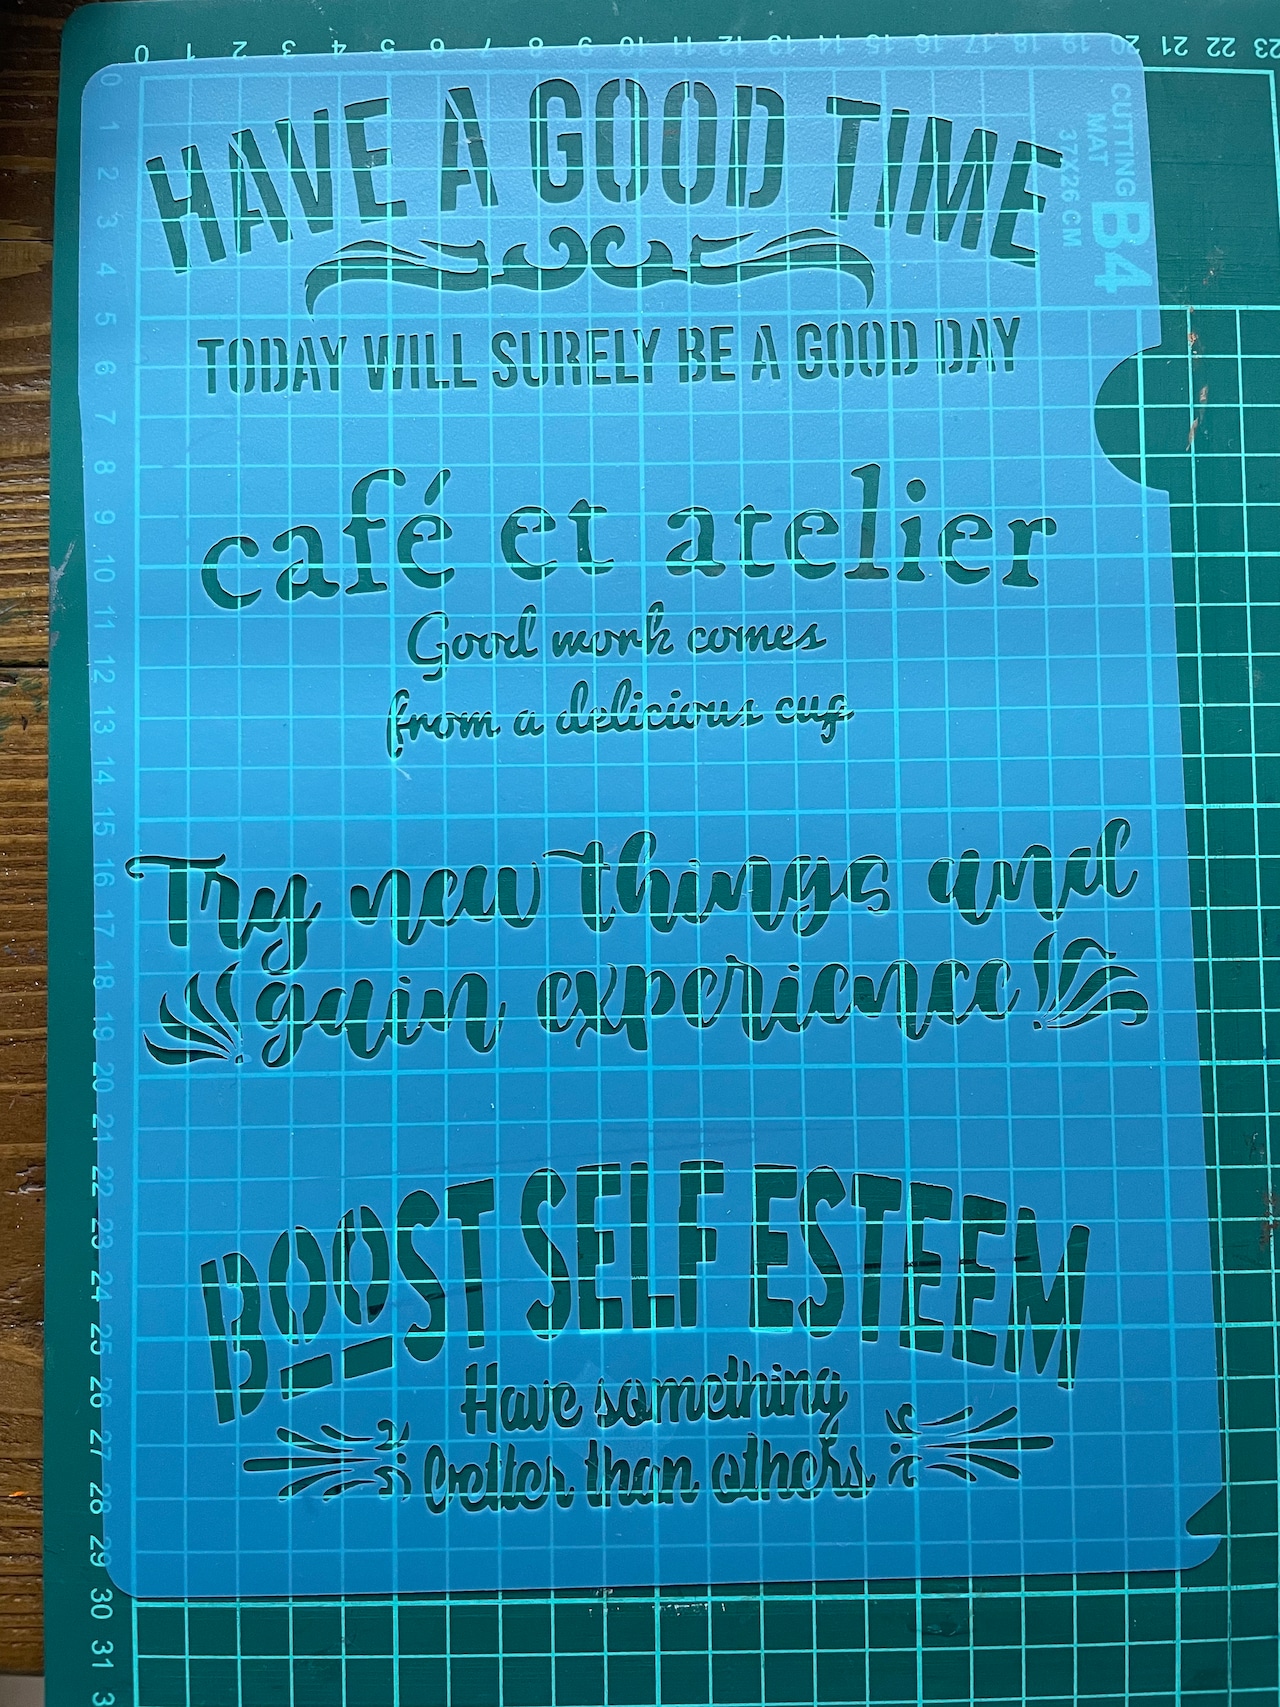 0 1 2 3 4 5 6 7 8 9 10 11 12 13 14 15 16 17 18 19 20 21 22 23
CUTTING
MAT B4
37X26 CM
HAVE A GOOD TIME
TODAY WILL SURELY BE A GOOD DAY
café et atelier
Good work comes
from a delicious cup
Try new things and
gain experience
BOOST SELF ESTEEM
Have something
better than others
0
1
2
3
4
5
6
7
8
9
10
11
12
13
14
15
16
17
18
19
20
21
22
23
24
25
26
27
28
29
30
31